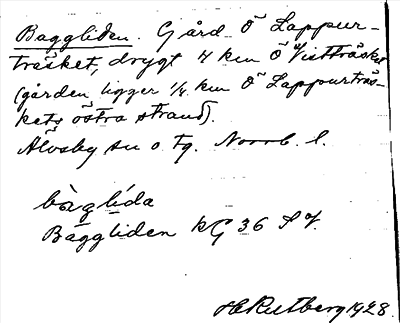 Baggliden. Gård Ö Lappur-
träsket, drygt 4 km Ö Vistträsket
(gården ligger 1/4 km Ö Lappurträs-
kets östra strand).
Älvsby sn o tg. Norrb. l.
bàglída
Baggliden kG 36 SV.
HRutberg 1928.